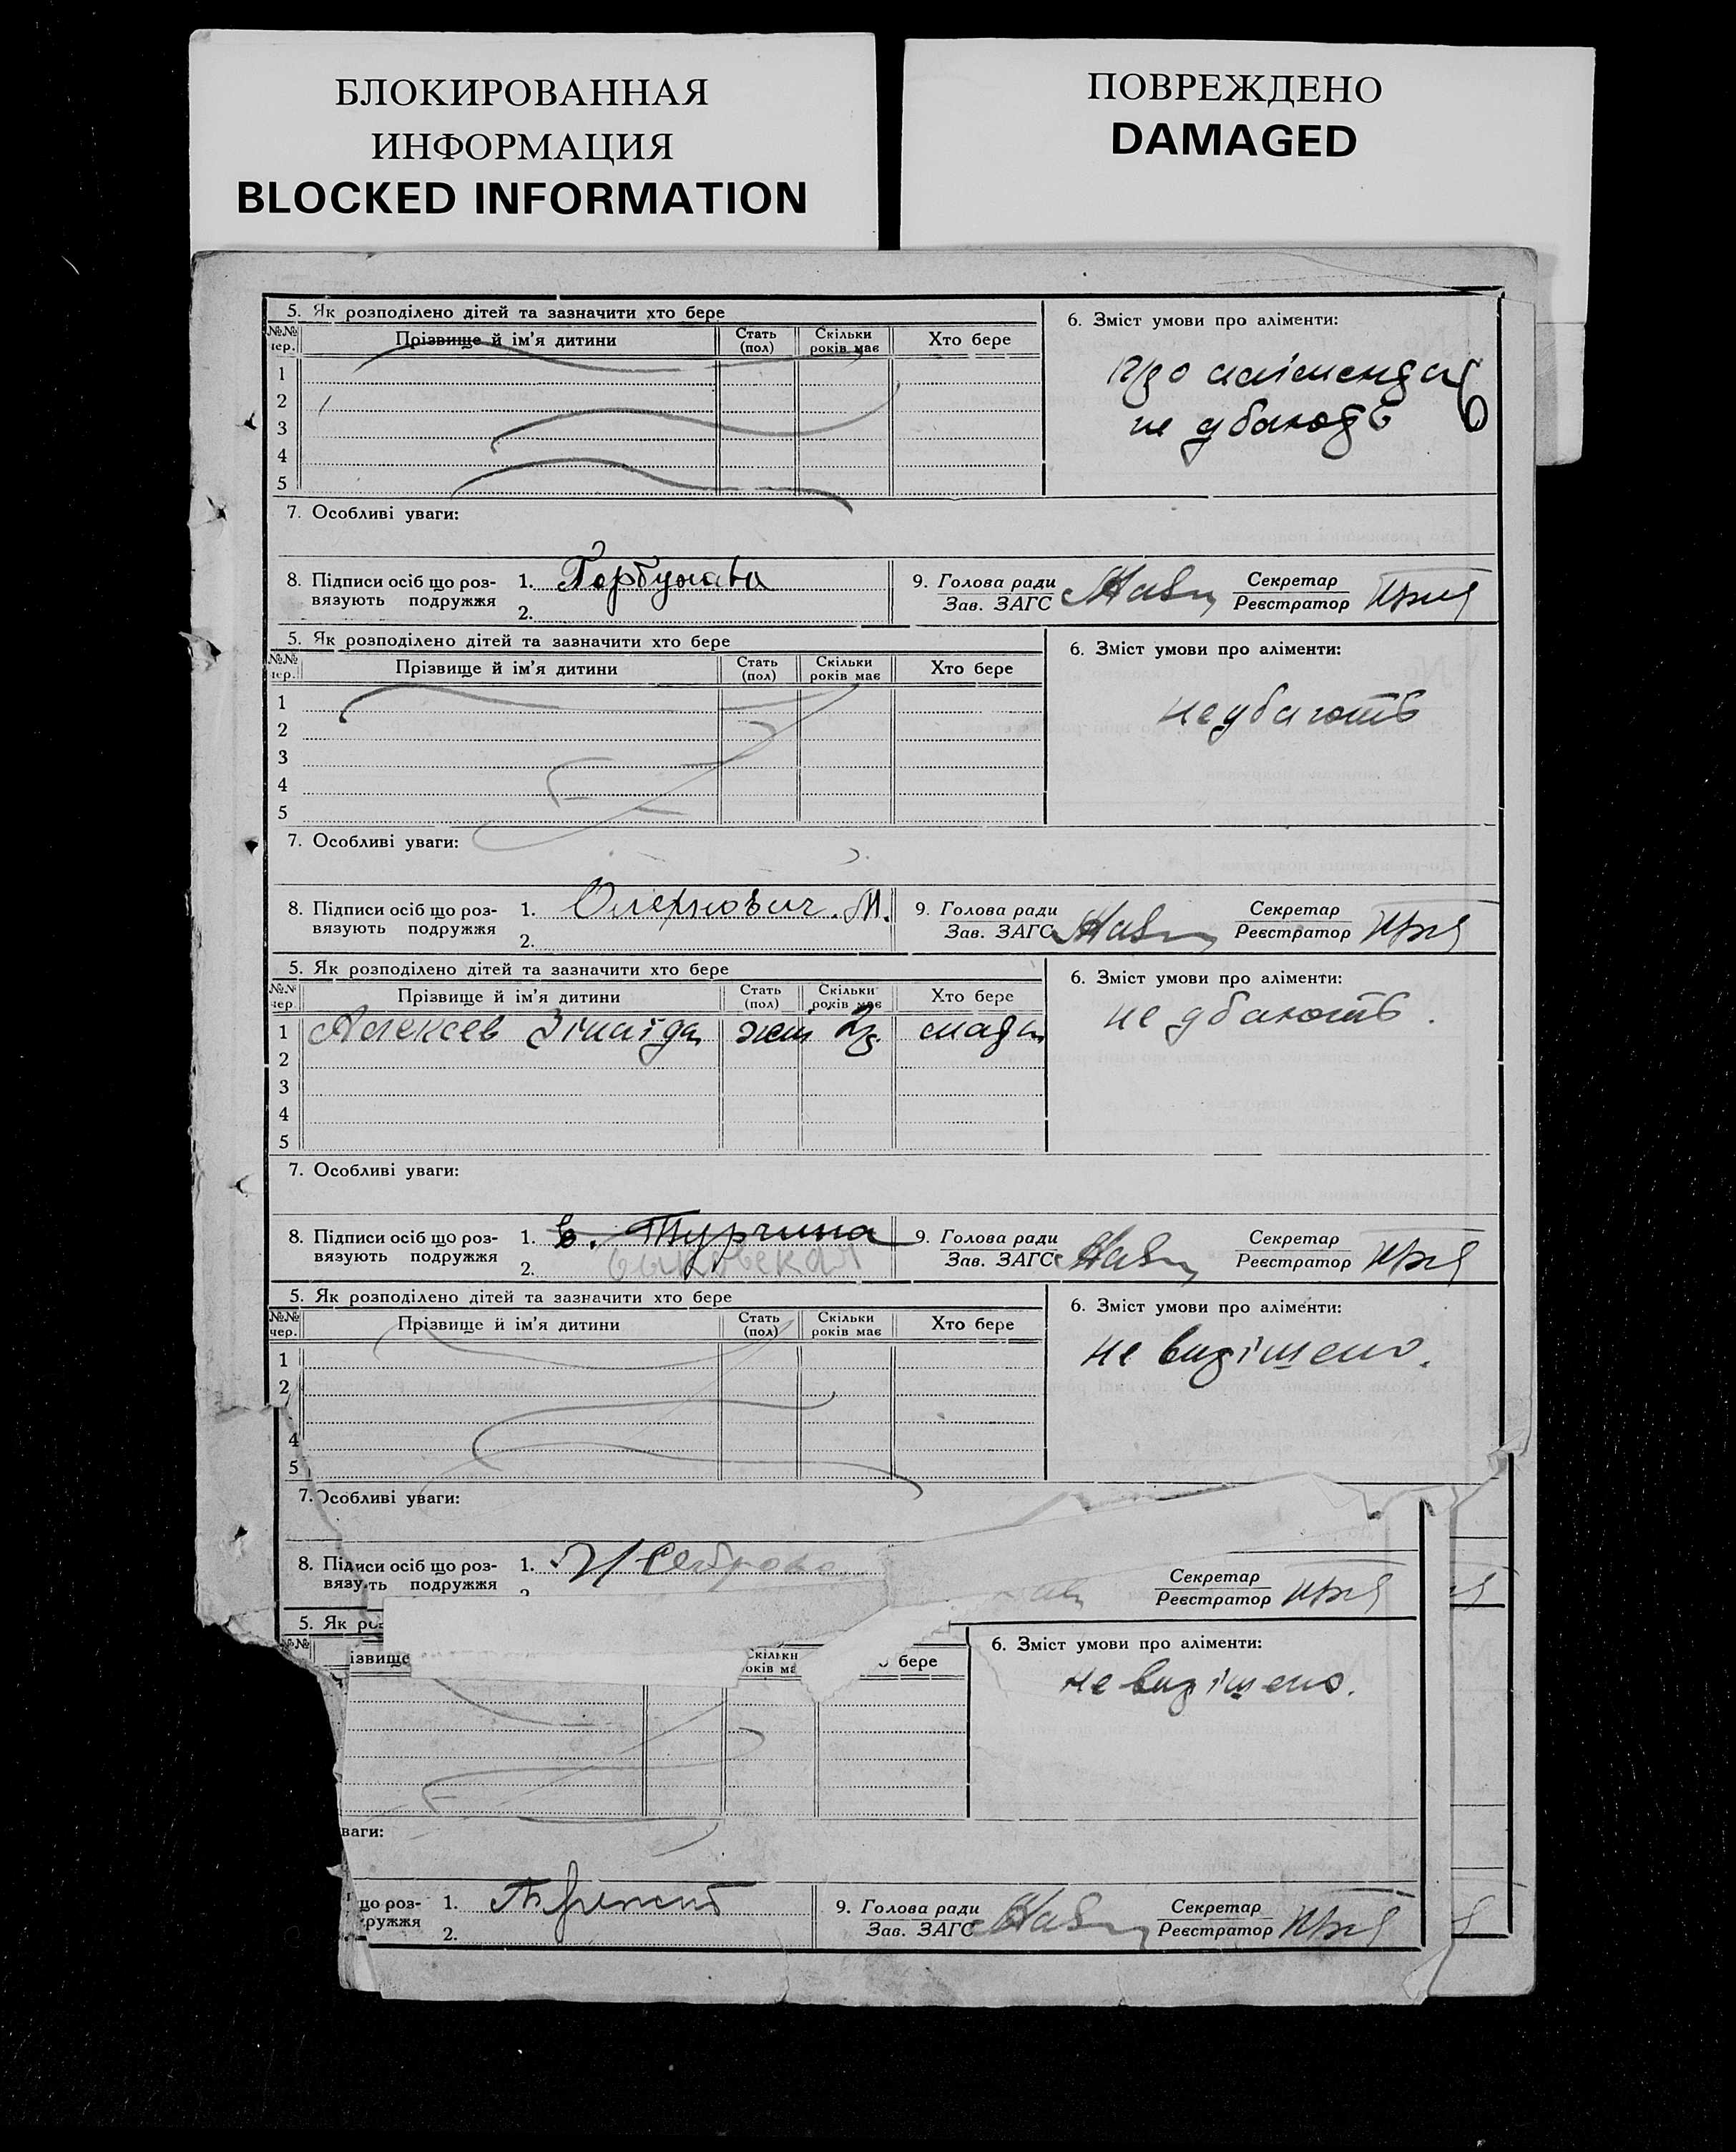 БЛОКИРОВАННАЯ
ИНФОРМАЦИЯ
BLOCKED INFORMATION
ПОВРЕЖДЕНО
DAMAGED
5. Як розподілено дітей та зазначити хто бере
№.№ чер. Прізвище й ім'я дитини Стать (пол) Скільки років має Хто бере
1
2
3
4
5
6. Зміст умови про аліменти:
про аліменди
не дбають
7. Особливі уваги:
8. Підписи осіб що роз-
вязують подружжя
1. Горбунова
2.
9. Голова ради
Зав. ЗАГС
Секретар
Реєстратор
5. Як розподілено дітей та зазначити хто бере
№.№ чер. Прізвище й ім'я дитини Стать (пол) Скільки років має Хто бере
1
2
3
4
5
6. Зміст умови про аліменти:
не дбають
7. Особливі уваги:
8. Підписи осіб що роз-
вязують подружжя
1. М.
2.
9. Голова ради
Зав. ЗАГС
Секретар
Реєстратор
5. Як розподілено дітей та зазначити хто бере
№.№ чер. Прізвище й ім'я дитини Стать (пол) Скільки років має Хто бере
1 Алексєєв Зінаїда жін
2
3
4
5
6. Зміст умови про аліменти:
не дбають.
7. Особливі уваги:
8. Підписи осіб що роз-
вязують подружжя
1. Турчина
2.
9. Голова ради
Зав. ЗАГС
Секретар
Реєстратор
5. Як розподілено дітей та зазначити хто бере
№.№ чер. Прізвище й ім'я дитини Стать (пол) Скільки років має Хто бере
1
2
4
5
6. Зміст умови про аліменти:
не вирішено.
7. Особливі уваги:
8. Підписи осіб що роз-
вязують подружжя
1.
Секретар
Реєстратор
5. Як
№.№
ізвище бере
6. Зміст умови про аліменти:
не вирішено.
ваги:
що роз-
ружжя
1.
2.
9. Голова ради
Зав. ЗАГС
Секретар
Реєстратор